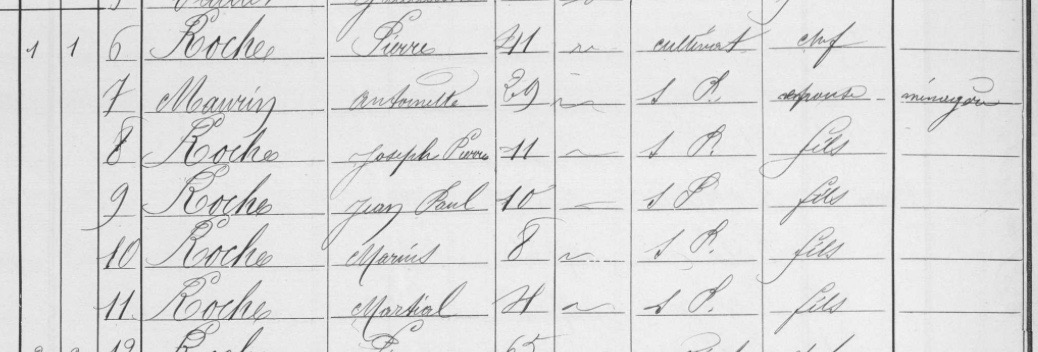 1 1 6 Roche Pierre 41 ~ cultivat chef
7 Maurin Antoinette 29 ~ s P. épouse ménagère
8 Roche Joseph Pierre 11 ~ s P. fils
9 Roche Jean Paul 10 ~ s P fils
10 Roche Marius 8 ~ s P. fils
11 Roche Martial 4 ~ s P. fils
12 65